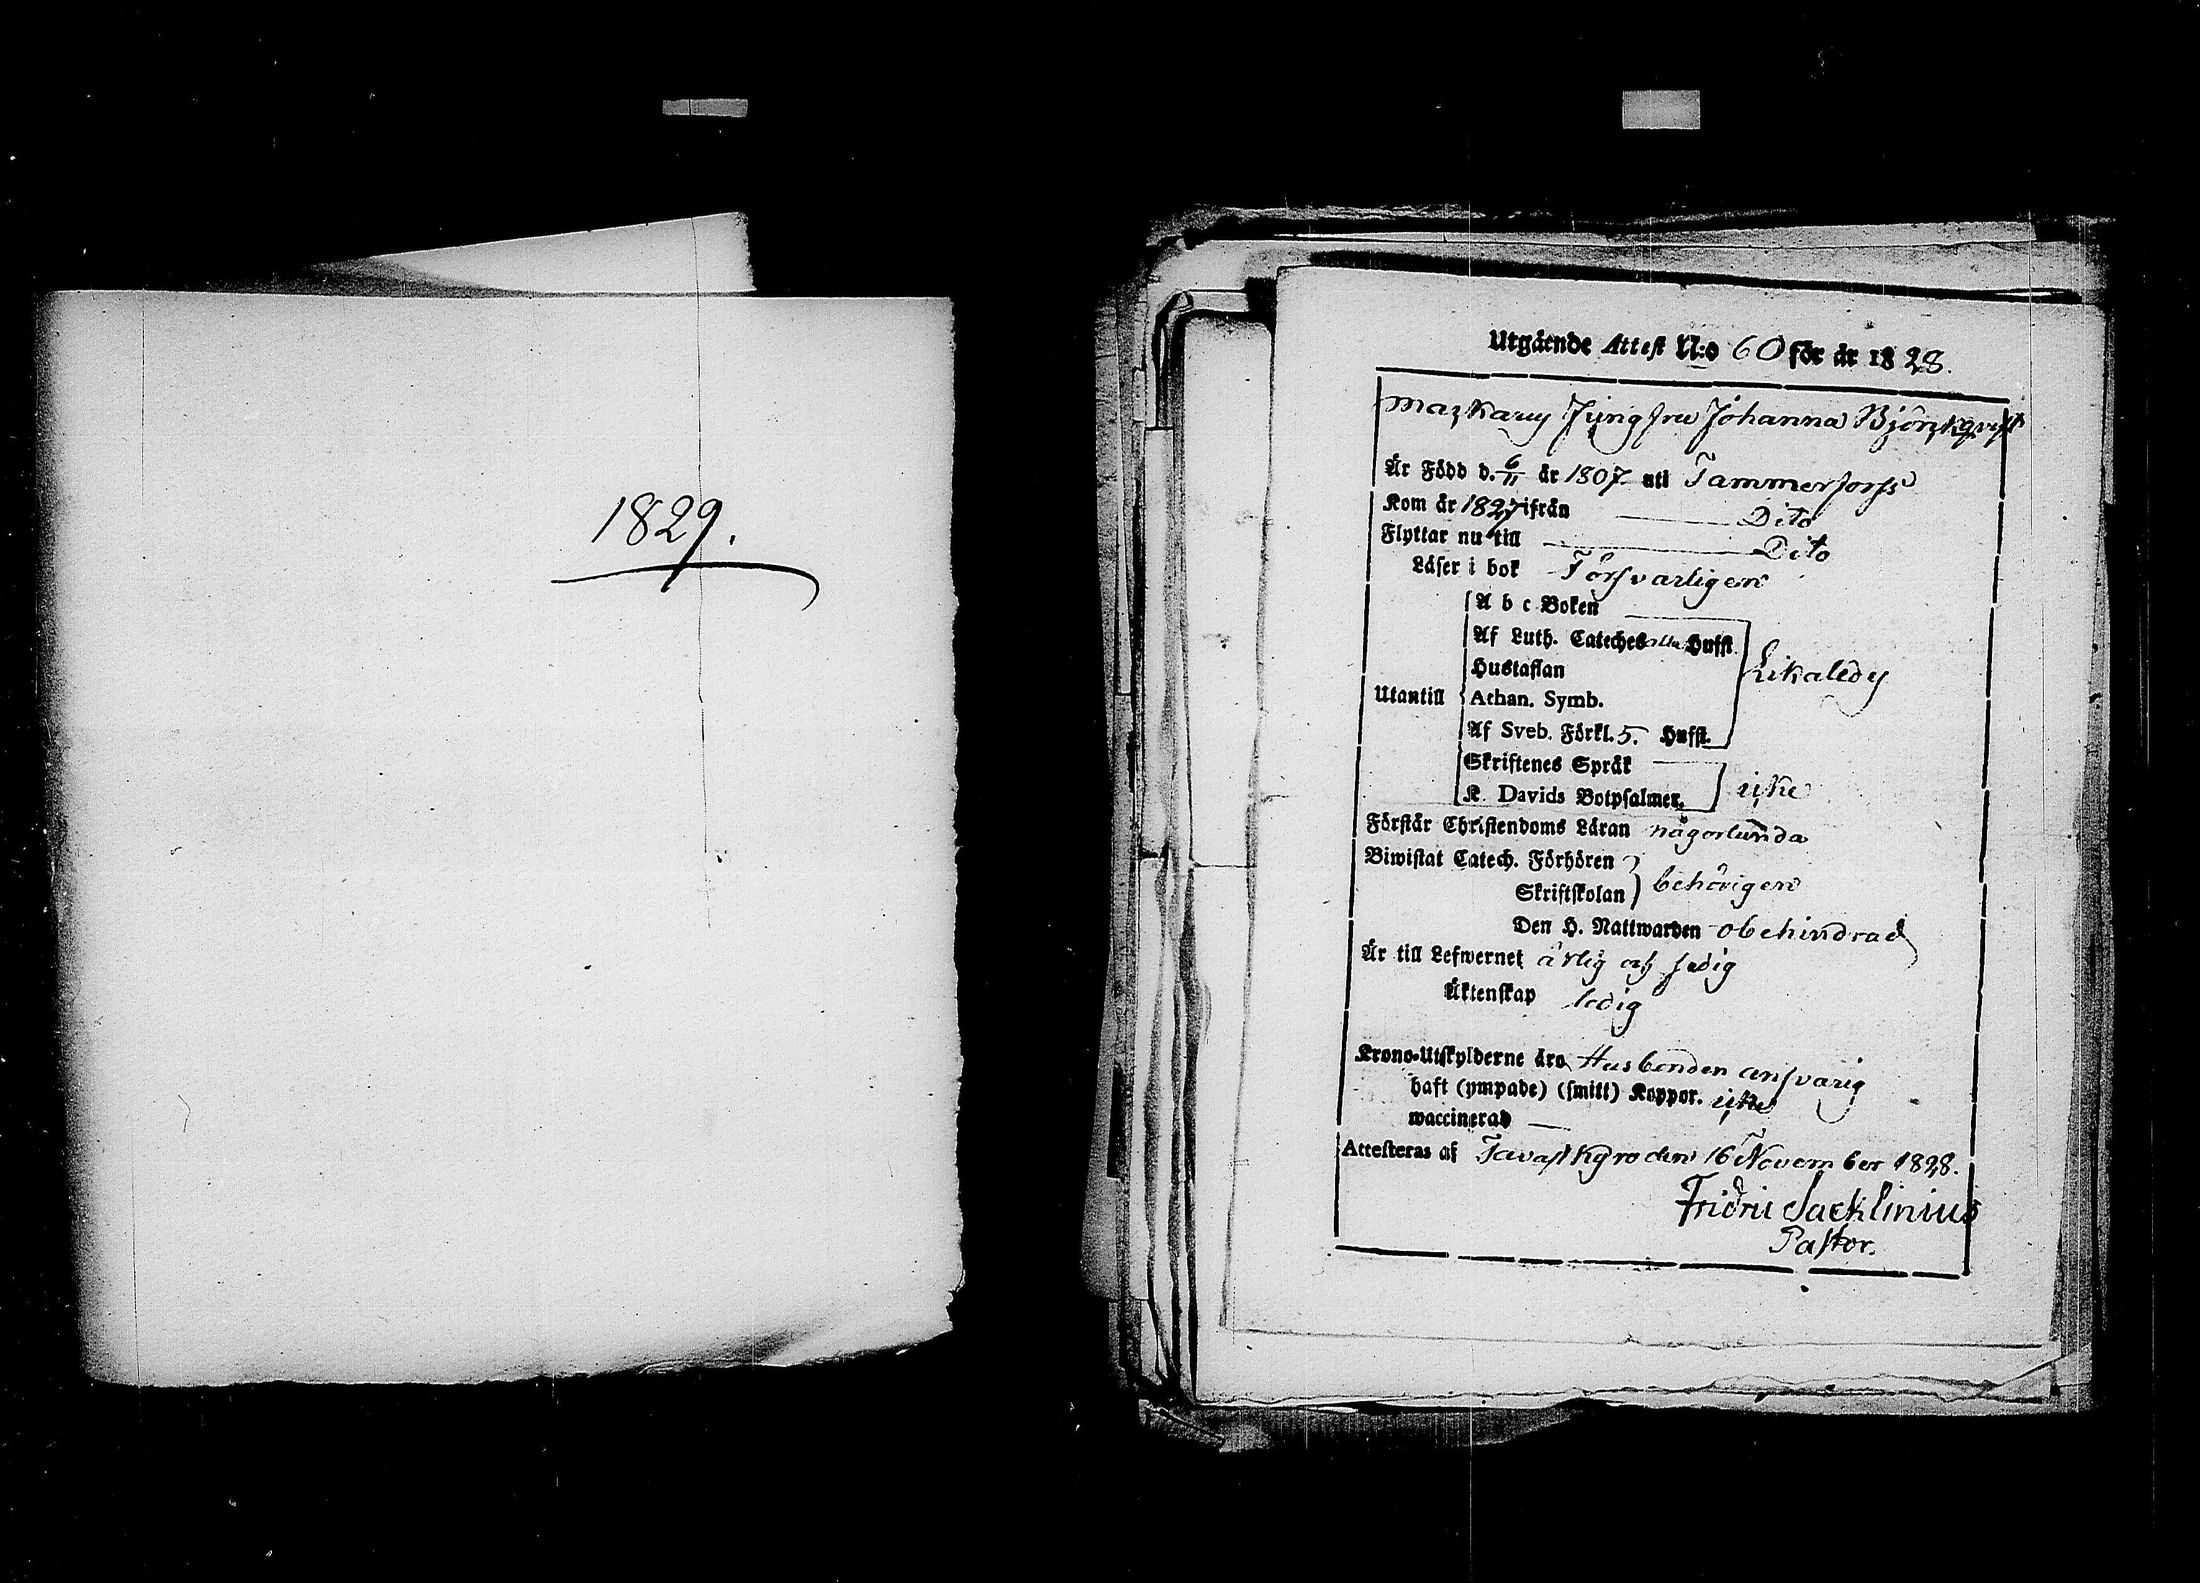 1829.
Utgående Attest N:o 60 för år 1828.
Jungfru Johanna Björkqvist
Är Född d. 6/11 år 1807 uti Tammerforss
Kom år 1827 ifrån Dito
Flyttar nu till Dito
Läser i bok Försvarligen
A b c Boken
Af Luth. Cateches alla Hufst.
Hustaflan
Utantill Athan. Symb. Likaledes
Af Sveb. Förkl. 5. Hufst.
Skriftenes Språk
K. Davids Botpsalmer. icke
Förstår Christendoms Läran någorlunda
Biwistat Catech. Förhören
Skriftskolan behörigen
Den H. Nattwarden obehindrad
Är till Lefwernet ärlig och sedig
Äktenskap ledig
Krono-Utskylderne äro Husbonden ansvarig
haft (ympade) (smitt) Koppor. icke
waccinerad —
Attesteras af Tavastkyro den 16 November 1828.
Fridric Jacklinius
Pastor.